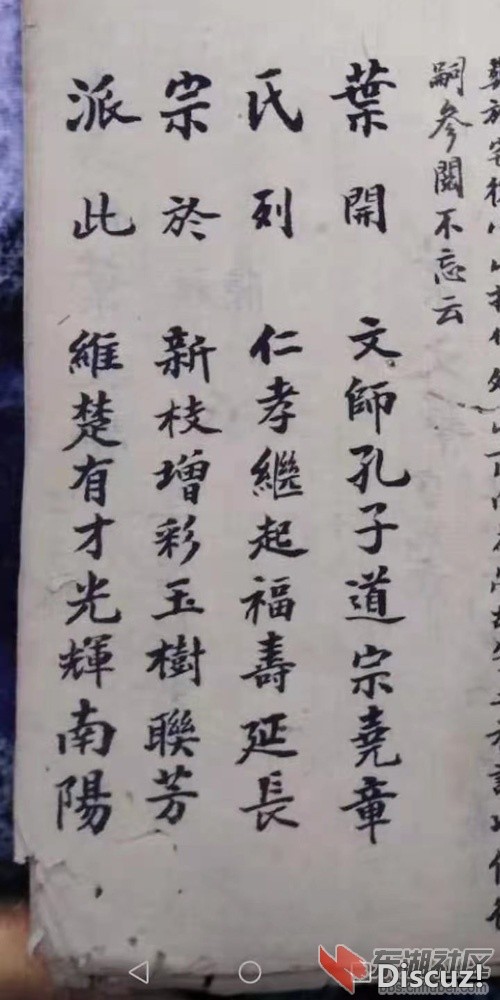 嗣参閱不忘云
葉氏宗派
開列於此
文師孔子道宗堯章
仁孝繼起福壽延長
新枝增彩玉樹聯芳
維楚有才光輝南陽
东湖社区
Discuz!